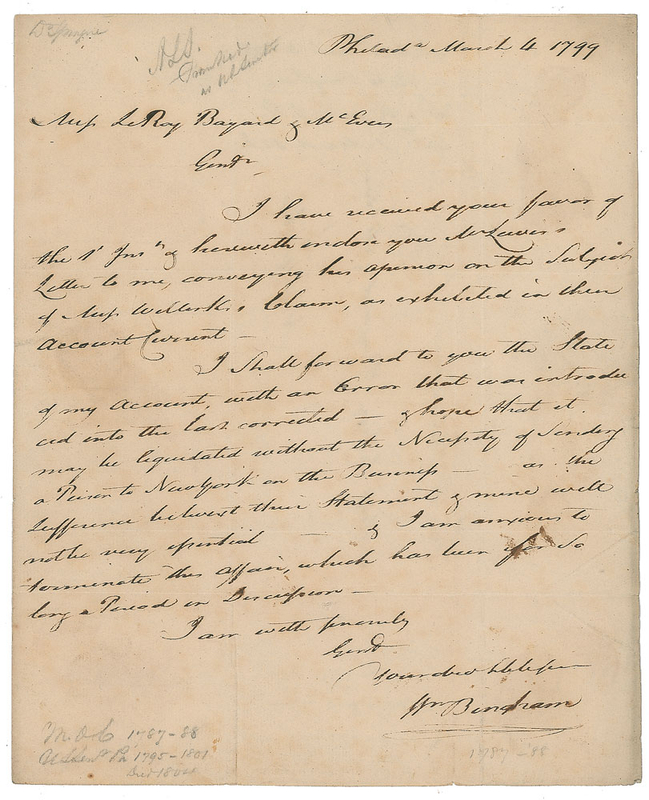 ALS.
Franked
as US Senator
Philad.a March 4 1799
Mess LeRoy Bayard & McEvers
Gentn
I have received your favor of
the 1t Inst & herewith enclose you Mr Lewis's
Letter to me, conveying his opinion on the Subject
of Mess Willink's Claim, as exhibited in their
Account Current —
I Shall forward to you the State
of my Account, with an Error that was introdu
ced into the last corrected — & hope that it
may be liquidated without the Necessity of Sending
a Person to New York on the Business — as the
Difference betwixt their Statement & mine will
not be very essential — & I am anxious to
terminate this affair, which has been for So
long a Period in Discussion —
I am with
Gentn
Your obed
Wm Bingham
M.O.C 1787-88
US Sen. Pa 1795-1801
Died 1804
1787-88